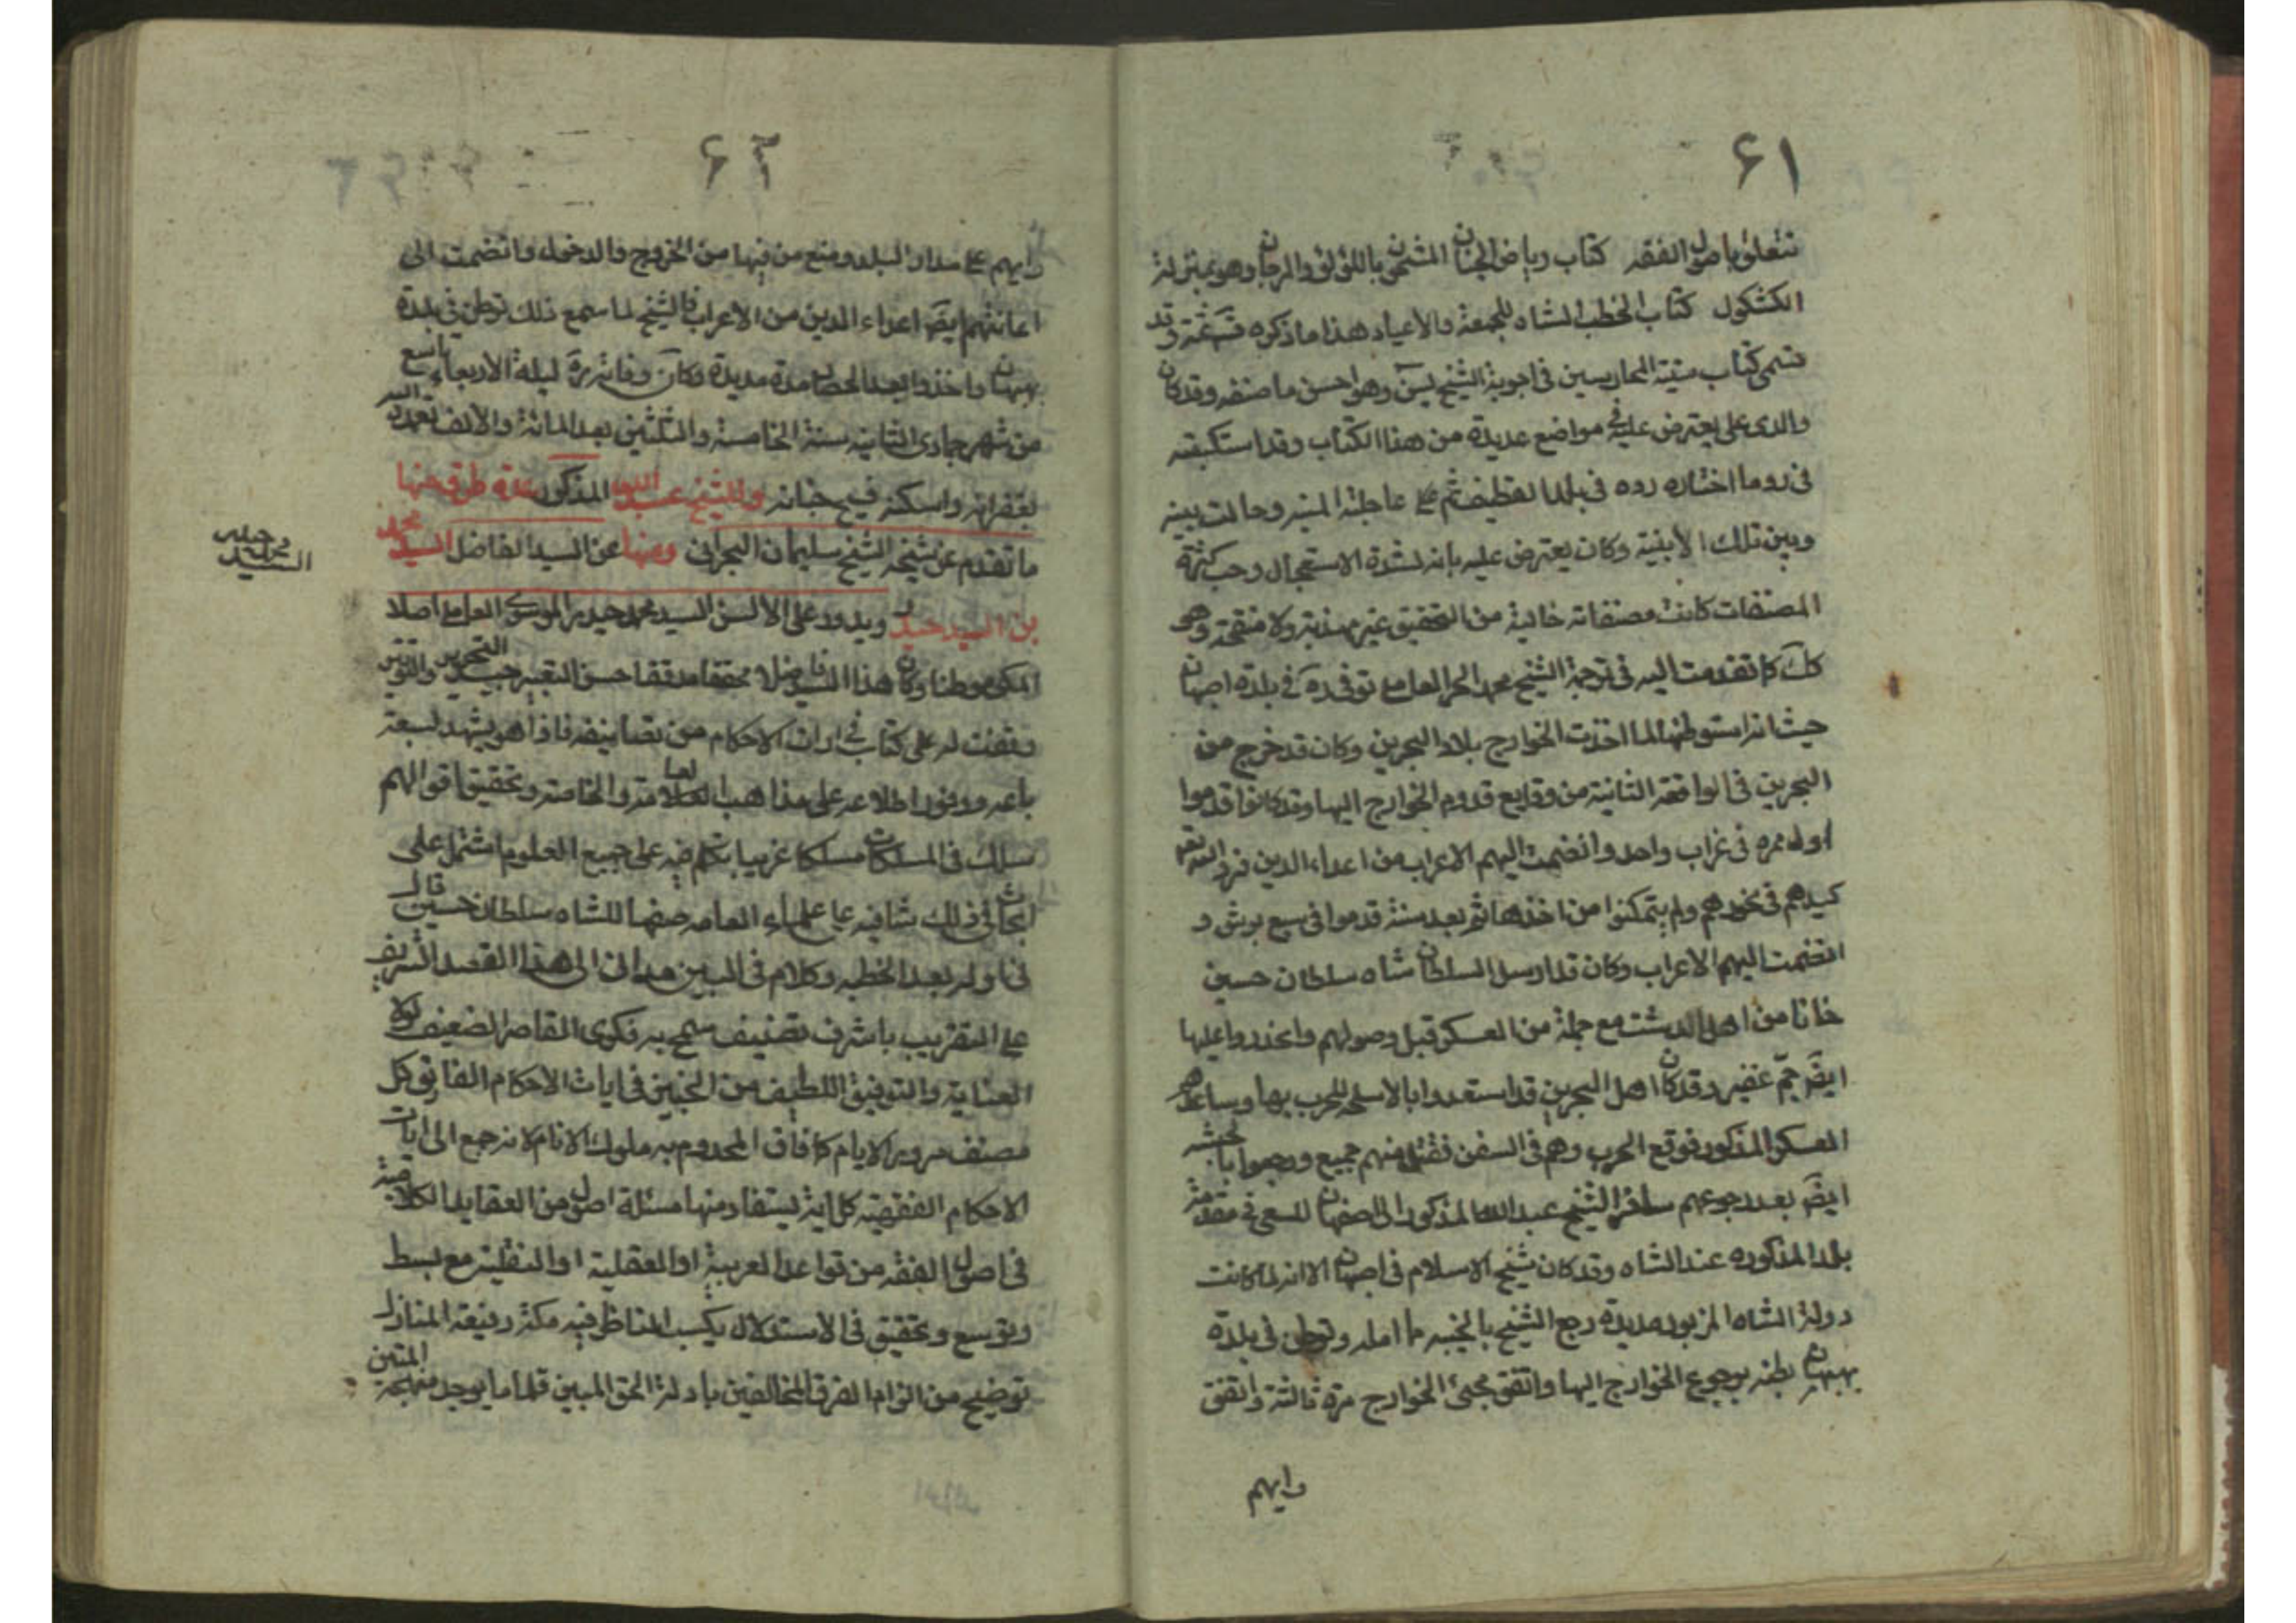 ٦١
تتعلق باصول الفقه كتاب رياض الجنان المشحون باللؤلؤ والمرجان وهو بمنزلة
الكشكول كتاب الخطب انشاه للجمعة والأعياد هذا ما ذكره ثمة وقد
كتاب منية الممارسين في اجوبة الشيخ يس وهو احسن ما صنفه وقد كان
والدى على يعترض عليه في مواضع عديدة من هذا الكتاب وقد استكتبه
في بلد القطيف ثم عاجلته المنية وحالت بينه
وبين تلك الأبنية وكان يعترض عليه بانه لشدة الاستعجال وحب كثرة
المصنفات كانت مصنفاته خالية من التحقيق غير مهذبة ولا منقحة وهو
كك كما تقدمت اليه في ترجمة الشيخ محمد الحر العاملي توفي ره في بلدة
حيث انه استوطنها لما اخذت الخوارج بلاد البحرين وكان قد خرج من
البحرين في الواقعة الثانية من وقايع قدوم الخوارج اليها وقد كانوا قدموا
اول مره في غراب واحد وانضمت اليهم الاعراب من اعداء الدين فرد الله
كيدهم في نحورهم ولم يتمكنوا من اخذها ثم بعد سنة قدموا في سبع برش و
انضمت اليهم الاعراب وكان قد ارسل السلطان شاه سلطان حسين
خانا من اهل الدشت مع جملة من العسكر قبل وصولهم واعليها
ايضَ جمّ غفير وقد كان اهل البحرين قد استعدوا بالاسلحه للحرب بها وساعدهم
العسكر المذكور فوقع الحرب وهم في السفن فقتل منهم جميع ورجعوا
ايضَ بعد رجوعهم سافر الشيخ عبد الله المذكور الى اصفهان للسعى في مقدمة
بلد المذكوره عند الشاه وقد كان شيخ الاسلام في اصبهان الا انه لما كانت
دولة الشاه المزبور مدبرة رجع الشيخ بالخيبه مما امله وتوطن في بلدة
بهبهان بظنه برجوع الخوارج اليها واتفق مجئ الخوارج مرة ثالثة واتفق
وايهم
٦٢
وايهم على مدار البلد ومنع من فيها من الخروج والدخول وانضمت الى
اعانتهم ايضَ اعداء الدين من الاعراب فالشيخ لما سمع ذلك توطن في بلدة
بهبهان واخذوا بعد الحصار مدة مديدة وكان وفاته ره ليلة الأربعاء تاسع
من شهر جمادى الثانيه سنة الخامسة والثلثين بعد المائة والألف تغمده الله
بغفرانه واسكنه فسيح جنانه وللشيخ عبد الله المذكور عدة طرق منها
ما تقدم عن شيخه الشيخ سليمان البحراني ومنها عن السيد الفاضل السيد محمد
بن السيد حيدر ويدور على الألسن السيد محمد حيدر الموسوى العاملي اصلا
المكى موطنا وكان هذا السيد فاضلا محققا مدققا حسن التعبير جيد التحرير والتقرير
وقفت له على كتاب في ايات الاحكام من تصانيفه فاذا هو يشهد بسعة
باعه ووفور اطلاعه على مذاهب العامة والخاصة وتحقيق اقوالهم
سلك في المسلكات مسلكا غريبا يتكلم فيه على جميع العلوم اشتمل على
ابحاث في ذلك شافيه مع علماء العامه صنفها للشاه سلطان حسين قال
في اوله بعد الخطبه وكلام في البين هدانى الى هذا القصد الشريف
على التقريب باشرف تصنيف سمح به فكرى القاصر الضعيف لولا
العناية والتوفيق اللطيف من الخبير في ايات الاحكام الفائق كل
مصنف الايام كافاق المخدوم به ملوك الانام لانه جمع الى ايات
الاحكام الفقهية كل اية يستفاد منها مسئلة اصول من العقايد الكلامية
في اصول الفقه من قواعد العربية او العقلية او النقلية مع بسط
وتوسع وتحقيق في الاستدلال يكسب الناظر فيه مكنة رفيعة المنازل
توضيح من الزام الفرق المخالفين بادلة الحق المبين قلما يوجد منهجه المتين
السيد